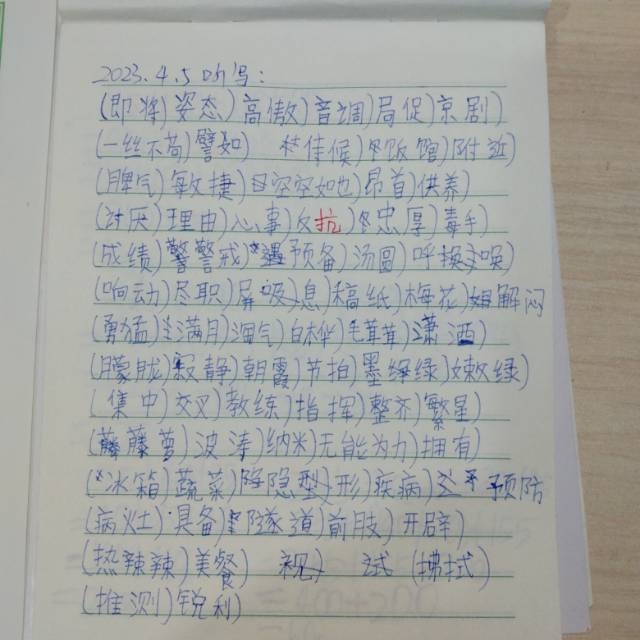 2023.4.5听写:
(即将)姿态)高傲)音调)局促)京剧)
(一丝不苟)譬如) 佳候)饭馆)附近)
(脾气)敏捷)空空如也)昂首)供养)
(讨厌)理由)心事)反抗)忠厚)毒手)
(成绩)警戒)预备)汤圆)呼唤)
(响动)尽职)屏息)稿纸)梅花)解闷
(勇猛)满月)淘气)白桦)毛茸茸)潇洒)
(朦胧)寂静)朝霞)节拍)墨绿)嫩绿)
(集中)交叉)教练)指挥)整齐)繁星)
(藤萝)波涛)纳米)无能为力)拥有)
(冰箱)蔬菜)隐形)疾病)预防
(病灶)具备)隧道)前肢)开辟)
(热辣辣)美餐) 视 试 (拂拭)
(推测)锐利)